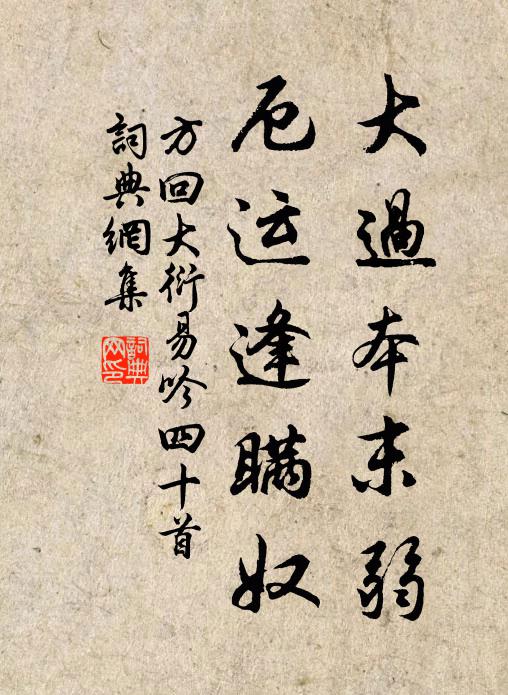 大過本末弱
厄运逢瞞奴
方回大衍易吟四十首
詞典網集
詞典網印